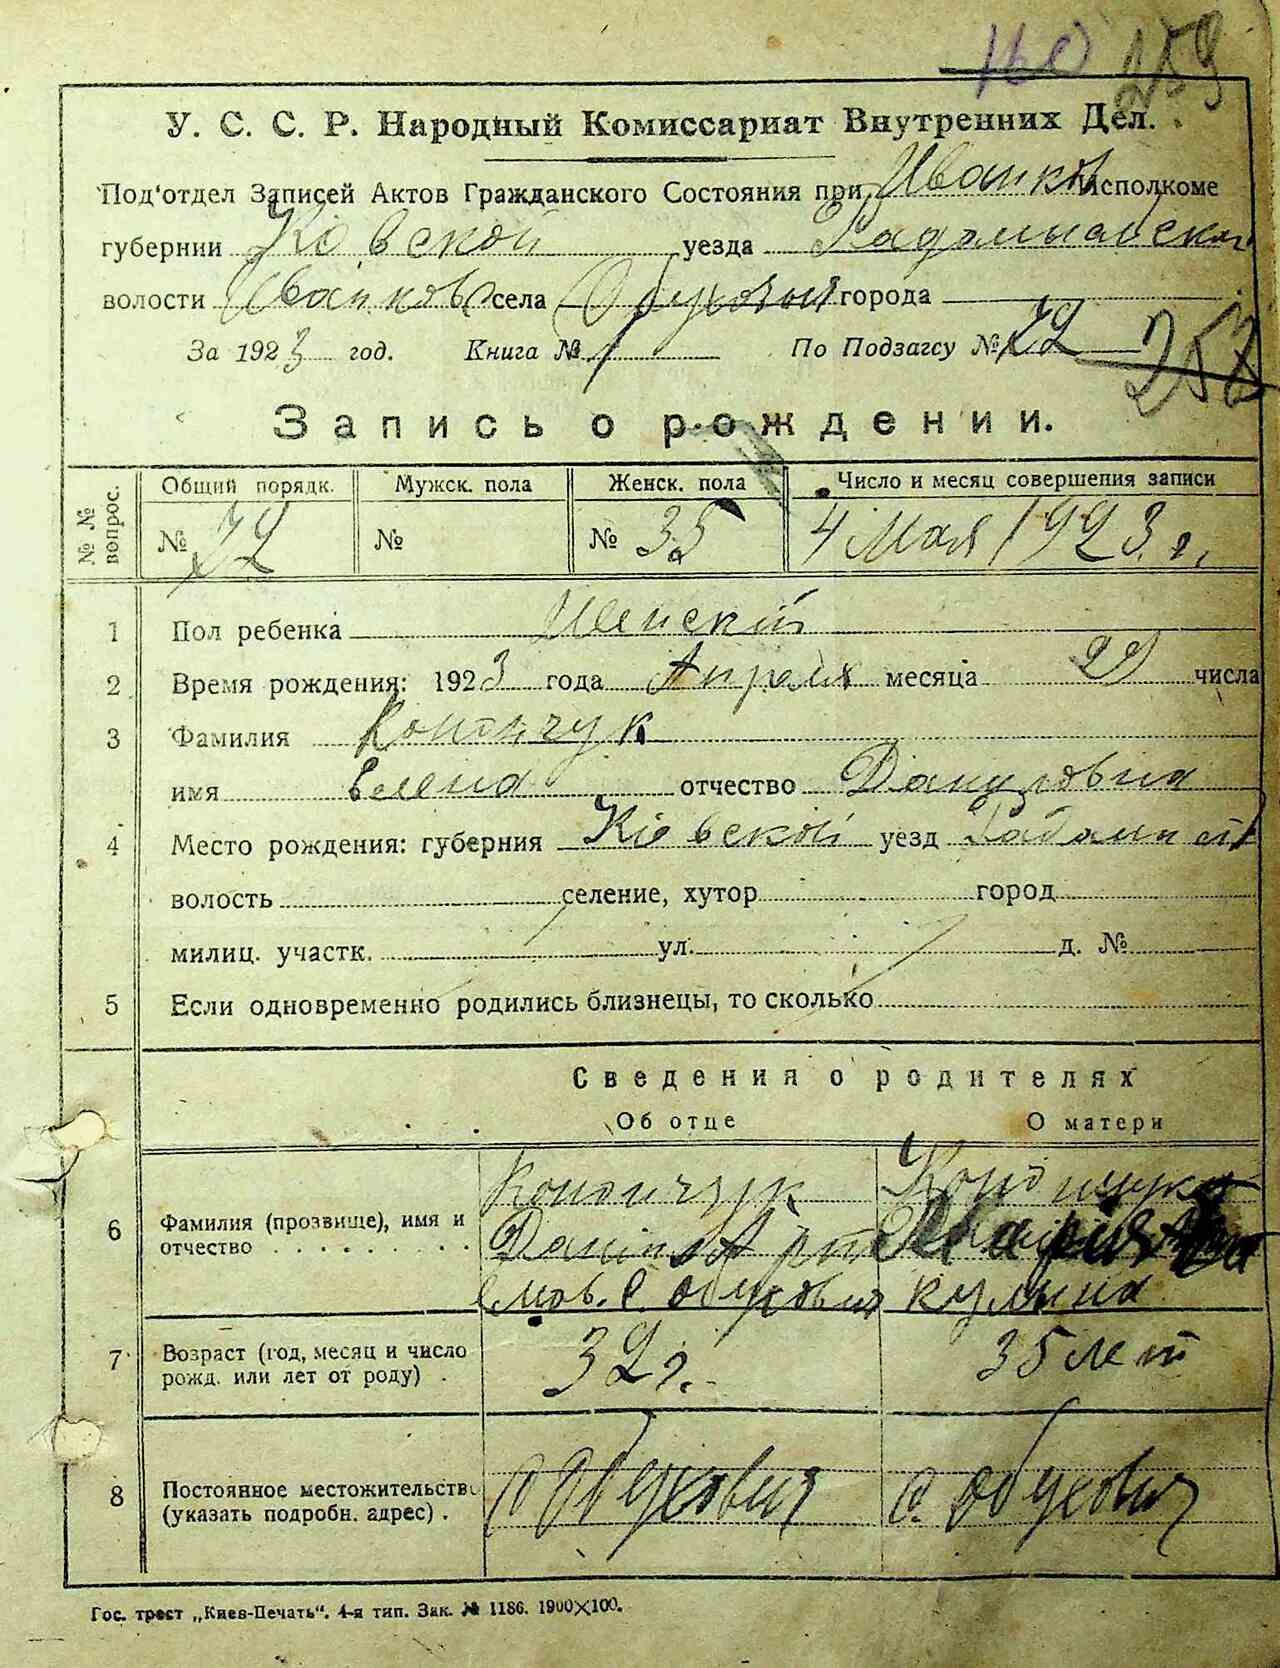 160 259
У. С. С. Р. Народный Комиссариат Внутренних Дел.
Под'отдел Записей Актов Гражданского Состояния при Иванков Исполкоме
губернии Кіевской уезда Радомысльской
волости Иванков села города
За 1923 год. Книга № 1 По Подзагсу № 72
258
Запись о рождении.
№ № вопрос. Общий порядк. Мужск. пола Женск. пола Число и месяц совершения записи
№ 72 № № 35 4 Мая 1923 г.
1 Пол ребенка Женский
2 Время рождения: 1923 года Апреля месяца числа
3 Фамилия Конончук
имя Елена отчество Даниловна
4 Место рождения: губерния Кіевской уезд
волость селение, хутор город
милиц. участк. ул. д. №
5 Если одновременно родились близнецы, то сколько
Сведения о родителях
Об отце О матери
6 Фамилия (прозвище), имя и отчество
Конончук
Данил
с. Обуховичи
7 Возраст (год, месяц и число рожд. или лет от роду) . 32 г. 35 лет
8 Постоянное местожительство (указать подробн. адрес) . с Обуховичи с. Обуховичи
Гос. трест „Киев-Печать“. 4-я тип. Зак. № 1186. 1900×100.